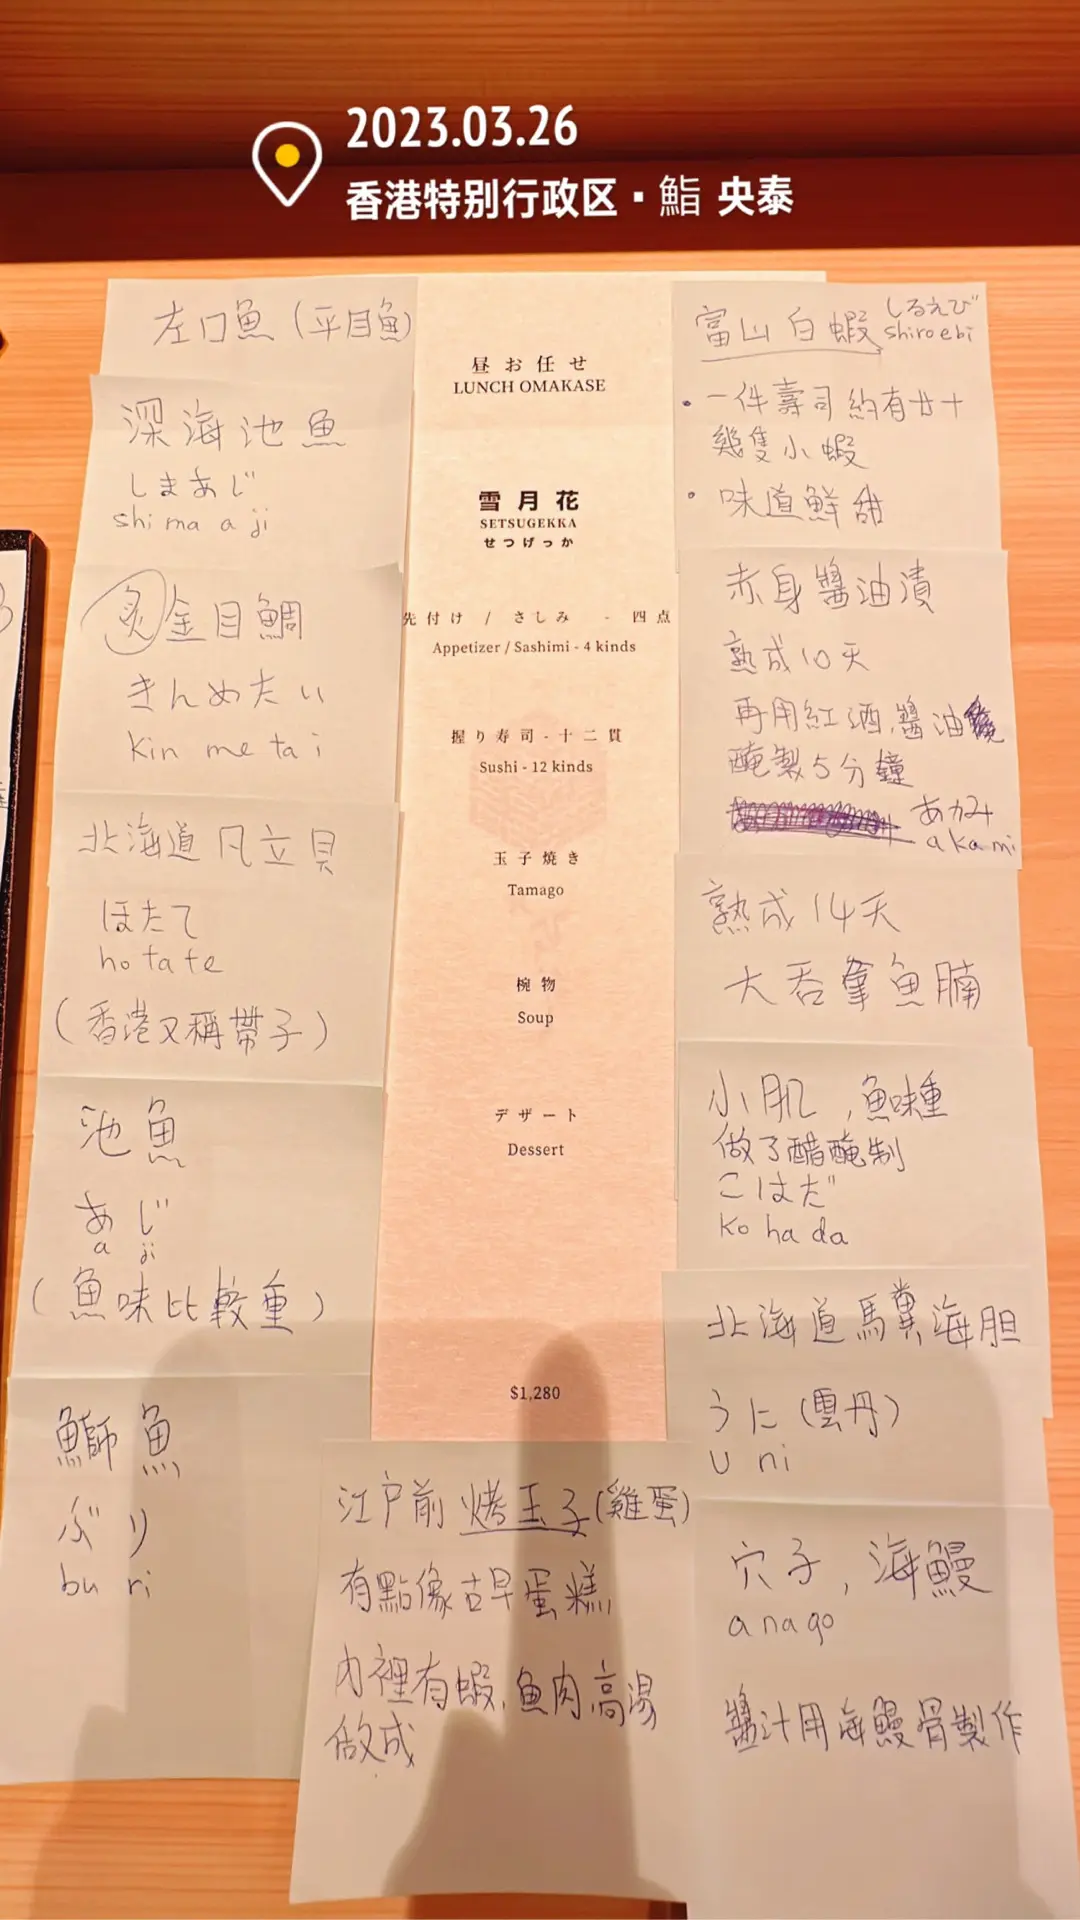 2023.03.26
香港特别行政区·鮨 央泰
左口魚（平目魚）
深海池魚
しまあじ
shi ma a ji
炙金目鯛
きんめたい
kin me ta i
北海道凡立貝
ほたて
ho ta te
（香港又稱帶子）
池魚
あじ
a ji
（魚味比較重）
鰤魚
ぶり
bu ri
昼お任せ
LUNCH OMAKASE
雪月花
SETSUGEKKA
せつげっか
先付け / さしみ - 四点
Appetizer / Sashimi - 4 kinds
握り寿司 - 十二貫
Sushi - 12 kinds
玉子焼き
Tamago
椀物
Soup
デザート
Dessert
$1,280
江戶前烤玉子(雞蛋)
有點像古早蛋糕,
內裡有蝦,魚肉高湯
做成
富山白蝦 しろえび
shiroebi
・一件壽司約有廿十
幾隻小蝦
・味道鮮甜
赤身醬油漬
熟成10天
再用紅酒,醬油
醃製5分鐘
あかみ
a ka mi
熟成14天
大吞拿魚腩
小肌,魚味重
做了醋醃制
こはだ
ko ha da
北海道馬糞海胆
うに（雲丹）
u ni
穴子,海鰻
a na go
醬汁用海鰻骨製作